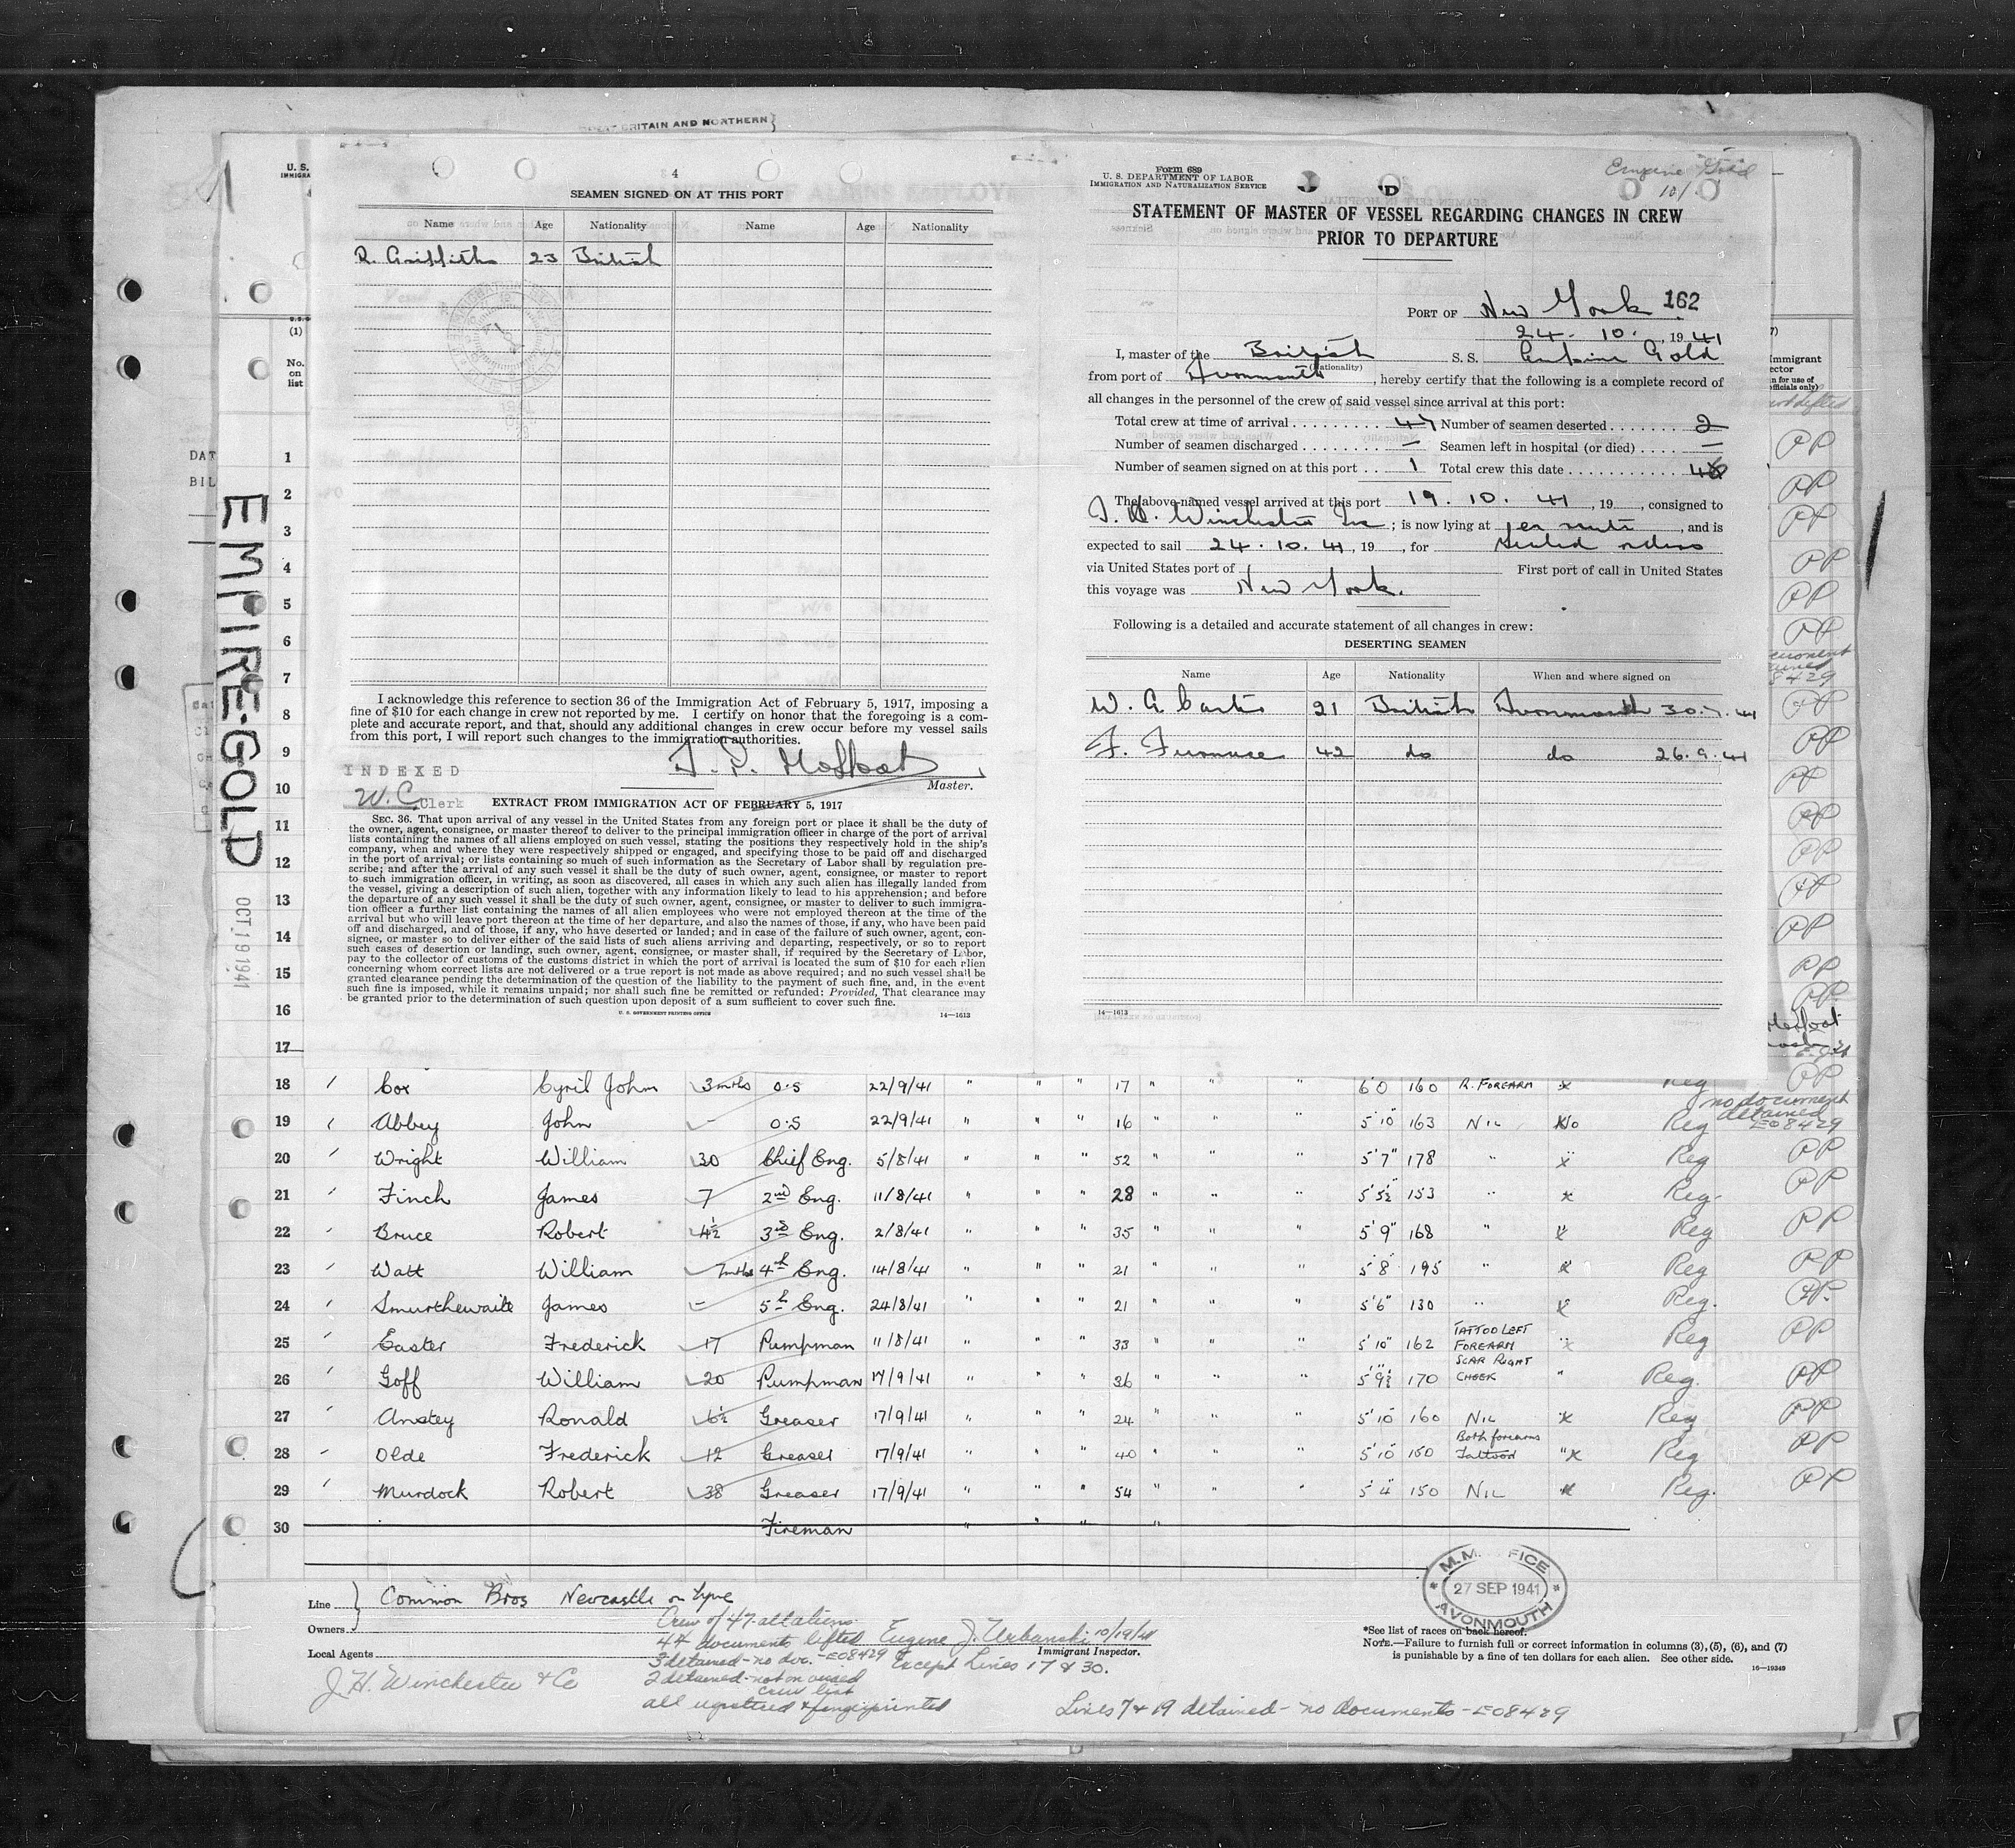 BRITAIN AND NORTHERN }
U. S.
IMMIGRA
4
SEAMEN SIGNED ON AT THIS PORT
Name Age Nationality Name Age Nationality
R. Griffiths 23 British
I acknowledge this reference to section 36 of the Immigration Act of February 5, 1917, imposing a
fine of $10 for each change in crew not reported by me. I certify on honor that the foregoing is a com-
plete and accurate report, and that, should any additional changes in crew occur before my vessel sails
from this port, I will report such changes to the immigration authorities.
INDEXED
Master.
W.C. Clerk
EXTRACT FROM IMMIGRATION ACT OF FEBRUARY 5, 1917
SEC. 36. That upon arrival of any vessel in the United States from any foreign port or place it shall be the duty of
the owner, agent, consignee, or master thereof to deliver to the principal immigration officer in charge of the port of arrival
lists containing the names of all aliens employed on such vessel, stating the positions they respectively hold in the ship's
company, when and where they were respectively shipped or engaged, and specifying those to be paid off and discharged
in the port of arrival; or lists containing so much of such information as the Secretary of Labor shall by regulation pre-
scribe; and after the arrival of any such vessel it shall be the duty of such owner, agent, consignee, or master to report
to such immigration officer, in writing, as soon as discovered, all cases in which any such alien has illegally landed from
the vessel, giving a description of such alien, together with any information likely to lead to his apprehension; and before
the departure of any such vessel it shall be the duty of such owner, agent, consignee, or master to deliver to such immigra-
tion officer a further list containing the names of all alien employees who were not employed thereon at the time of the
arrival but who will leave port thereon at the time of her departure, and also the names of those, if any, who have been paid
off and discharged, and of those, if any, who have deserted or landed; and in case of the failure of such owner, agent, con-
signee, or master so to deliver either of the said lists of such aliens arriving and departing, respectively, or so to report
such cases of desertion or landing, such owner, agent, consignee, or master shall, if required by the Secretary of Labor,
pay to the collector of customs of the customs district in which the port of arrival is located the sum of $10 for each alien
concerning whom correct lists are not delivered or a true report is not made as above required; and no such vessel shall be
granted clearance pending the determination of the question of the liability to the payment of such fine, and, in the event
such fine is imposed, while it remains unpaid; nor shall such fine be remitted or refunded: Provided, That clearance may
be granted prior to the determination of such question upon deposit of a sum sufficient to cover such fine.
U. S. GOVERNMENT PRINTING OFFICE 14—1613
Form 689
U. S. DEPARTMENT OF LABOR
IMMIGRATION AND NATURALIZATION SERVICE
Empire Gold
STATEMENT OF MASTER OF VESSEL REGARDING CHANGES IN CREW
PRIOR TO DEPARTURE
PORT OF New York 162
24. 10. , 19 41
I, master of the British S. S. Empire Gold
(Nationality)
from port of Avonmouth , hereby certify that the following is a complete record of
all changes in the personnel of the crew of said vessel since arrival at this port:
Total crew at time of arrival 47 Number of seamen deserted 2
Number of seamen discharged — Seamen left in hospital (or died) —
Number of seamen signed on at this port 1 Total crew this date
The above-named vessel arrived at this port 19. 10. 41 , 19 , consigned to
J. H. Winchester Inc ; is now lying at , and is
expected to sail 24. 10. 41 , 19 , for Sealed orders
via United States port of First port of call in United States
this voyage was New York.
Following is a detailed and accurate statement of all changes in crew:
DESERTING SEAMEN
Name Age Nationality When and where signed on
W. G. 21 British Avonmouth 30.7.41
F. 42 do do 26.9.41
14—1613
EMPIRE-GOLD
OCT 19 1941
(1)
No.
on
list
1
2
3
4
5
6
7
8
9
10
11
12
13
14
15
16
17
18 Cox Cyril John 3mths O.S 22/9/41 " " " 17 " " " 6'0 160 R. FOREARM Reg PP
19 Abbey John - O.S 22/9/41 " " " 16 " " " 5'10" 163 NIL No Reg no document detained E08429
20 Wright William 30 Chief Eng. 5/8/41 " " " 52 " " " 5'7" 178 " Reg PP
21 Finch James 7 2nd Eng. 11/8/41 " " " 28 " " " 5'5½" 153 " Reg. PP
22 Bruce Robert 4½ 3rd Eng. 2/8/41 " " " 35 " " " 5'9" 168 " Reg PP
23 Watt William 7mths 4th Eng. 14/8/41 " " " 21 " " " 5'8" 195 " Reg PP
24 Smurthewaite James - 5th Eng. 24/8/41 " " " 21 " " " 5'6" 130 " Reg. PP.
25 Easter Frederick 17 Pumpman 11/8/41 " " " 33 " " " 5'10" 162 TATTOO LEFT FOREARM Reg PP
26 Goff William 20 Pumpman 17/9/41 " " " 36 " " " 5'9½" 170 SCAR RIGHT CHEEK " Reg. PP
27 Anstey Ronald 6½ Greaser 17/9/41 " " " 24 " " " 5'10" 160 NIL Reg PP
28 Olde Frederick 12 Greaser 17/9/41 " " " 40 " " " 5'10" 150 Both forearms Tattooed " Reg PP
29 Murdock Robert 38 Greaser 17/9/41 " " " 54 " " " 5'4" 150 NIL Reg. PP
30 Fireman " " " "
M.M. OFFICE
27 SEP 1941
AVONMOUTH
Line } Common Bros Newcastle on Tyne
Owners
Crew of 47 all aliens
44 documents lifted Eugene J. Urbanski 10/19/41
Immigrant Inspector.
Local Agents
3 detained - no doc. - E08429 Except Lines 17 & 30.
J.H. Winchester & Co
2 detained - not on visaed
crew list
all registered & fingerprinted
Lines 7 & 19 detained - no documents - E08429
*See list of races on back hereof.
NOTE.—Failure to furnish full or correct information in columns (3), (5), (6), and (7)
is punishable by a fine of ten dollars for each alien. See other side.
16—19349